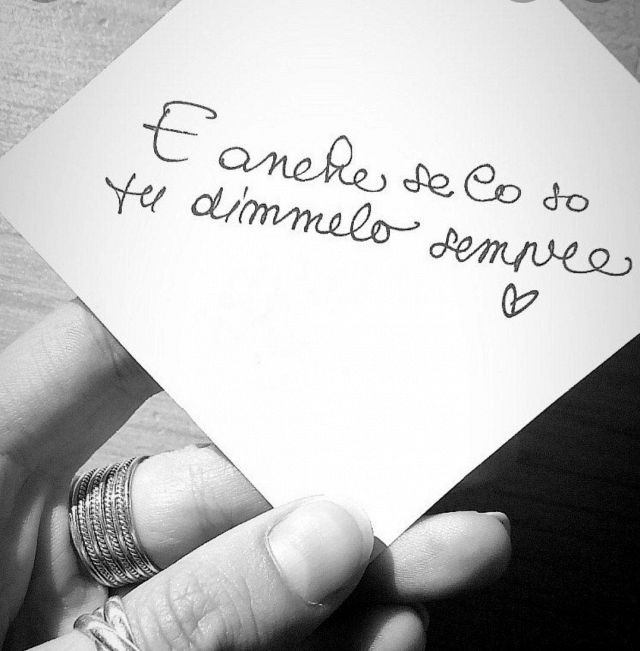 E anche se lo so
tu dimmelo sempre